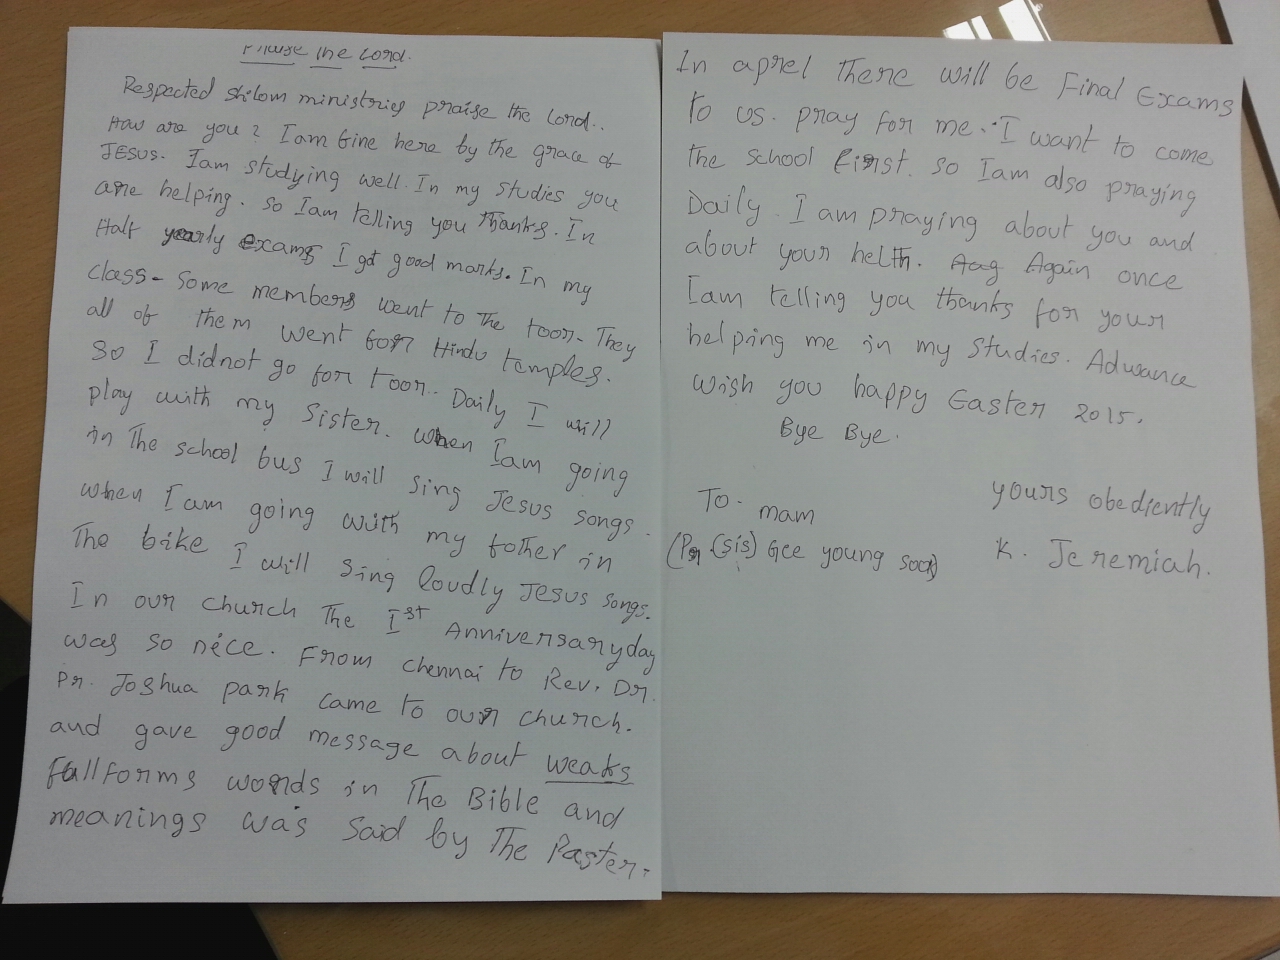 Praise the Lord.
Respected Shilom ministries praise the Lord..
How are you? Iam fine here by the grace of
JESUS. Iam studying well. In my studies you
are helping. So Iam telling you thanks. In
Half yearly exams I got good marks. In my
class - some members went to the toor. They
all of them went for Hindu temples.
So I didnot go for toor.. Daily I will
play with my sister. when Iam going
in the school bus I will sing Jesus songs.
when I am going with my father in
The bike I will sing loudly Jesus songs.
In our church The Ist Anniversaryday
was so nice. From chennai to Rev. Dr.
Pr. Joshua park came to our church.
and gave good message about weaks
fullforms words in The Bible and
meanings was said by The Paster.
In aprel There will be Final Exams
to us. pray for me. I want to come
the school first. so Iam also praying
Daily. I am praying about you and
about your helth. Aag Again once
Iam telling you thanks for your
helping me in my studies. Advance
wish you happy Easter 2015.
Bye Bye.
To - mam
(Pr. (sis) Gee young sook)
yours obediently
K. Jeremiah.